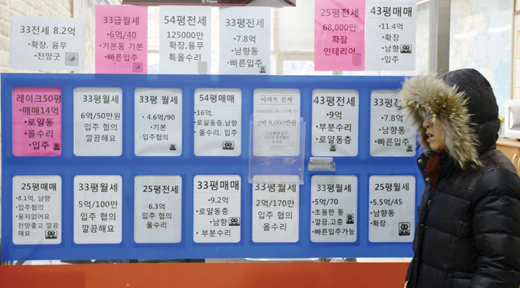 33전세 8.2억
•확장, 융무
•전망굿
33급월세
•6억/40
•기본동 기본
•빠른입주
54평전세
125000만
확장,융무
특올수리
33평전세
•7.8억
•남향동
•빠른입주
25평전세
68,000만
확장
인테리어
43평매매
•11.4억
•확장
•남향
•입주
레이크50평
•매매14억
•로얄동
•올수리
•입주
33평월세
6억/50만원
입주 협의
깔끔해요
33평 월세
•4.6억/90
•기본
•입주협의
54평매매
16억,
로얄동층,남향
올수리, 입주
아파트 전세
43평전세
•9억
•부분수리
•로얄동층
33평전세
•7.8억
•남향동
•빠른입주
25평매매
•8.1억, 남향
•입주협의
•융자없어요
전망좋고 깔끔
해요
33평월세
5억/100만
입주 협의
깔끔해요
25평전세
6.3억
입주 협의
올수리
33평매매
•9.2억
•로얄동층
•남향
•부분수리
33평월세
2억/170만
입주 협의
올수리
33평월세
•5억/70
•조용한 동
•깔끔,고층
•빠른입주가능
25평월세
•5.5억/45
•남향동
•확장